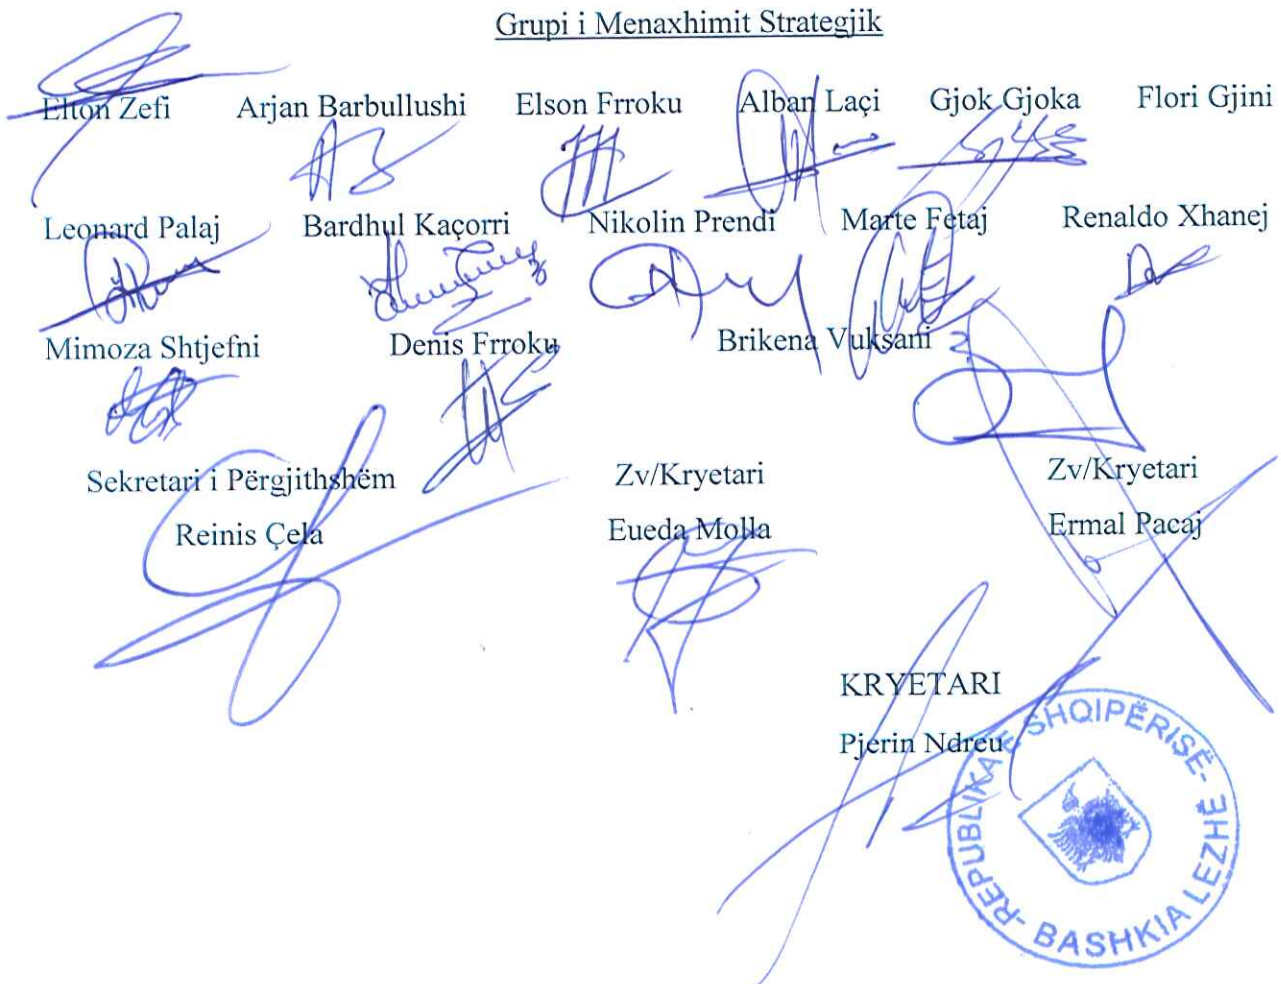 Grupi i Menaxhimit Strategjik
Elton Zefi Arjan Barbullushi Elson Frroku Alban Laçi Gjok Gjoka Flori Gjini
Leonard Palaj Bardhul Kaçorri Nikolin Prendi Marte Fetaj Renaldo Xhanej
Mimoza Shtjefni Denis Frroku Brikena Vuksani
Sekretari i Përgjithshëm Zv/Kryetari Zv/Kryetari
Reinis Çela Eueda Molla Ermal Pacaj
KRYETARI
Pjerin Ndreu
REPUBLIKA E SHQIPËRISË-
- BASHKIA LEZHË